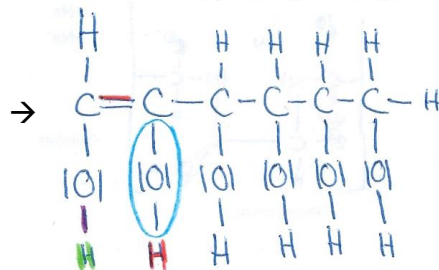 H H H H H
→ C=C-C-C-C-C-H
|O| |O| |O| |O| |O| |O|
H H H H H H